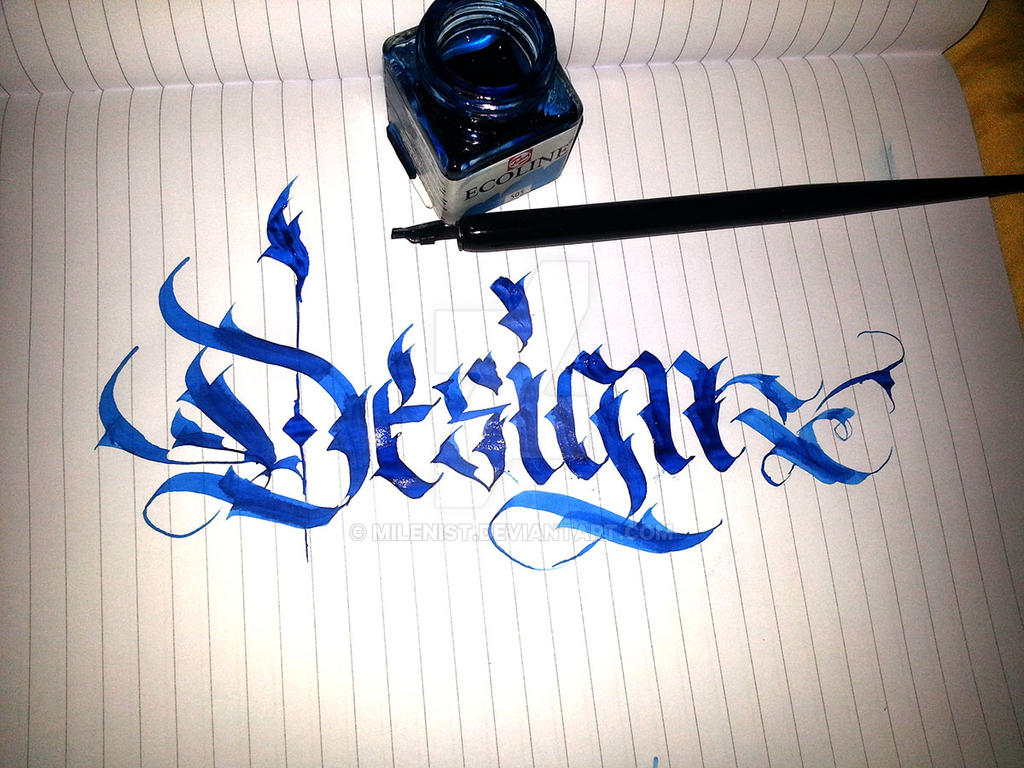 ECOLINE
505
Design
© MILENIST.DEVIANTART.COM